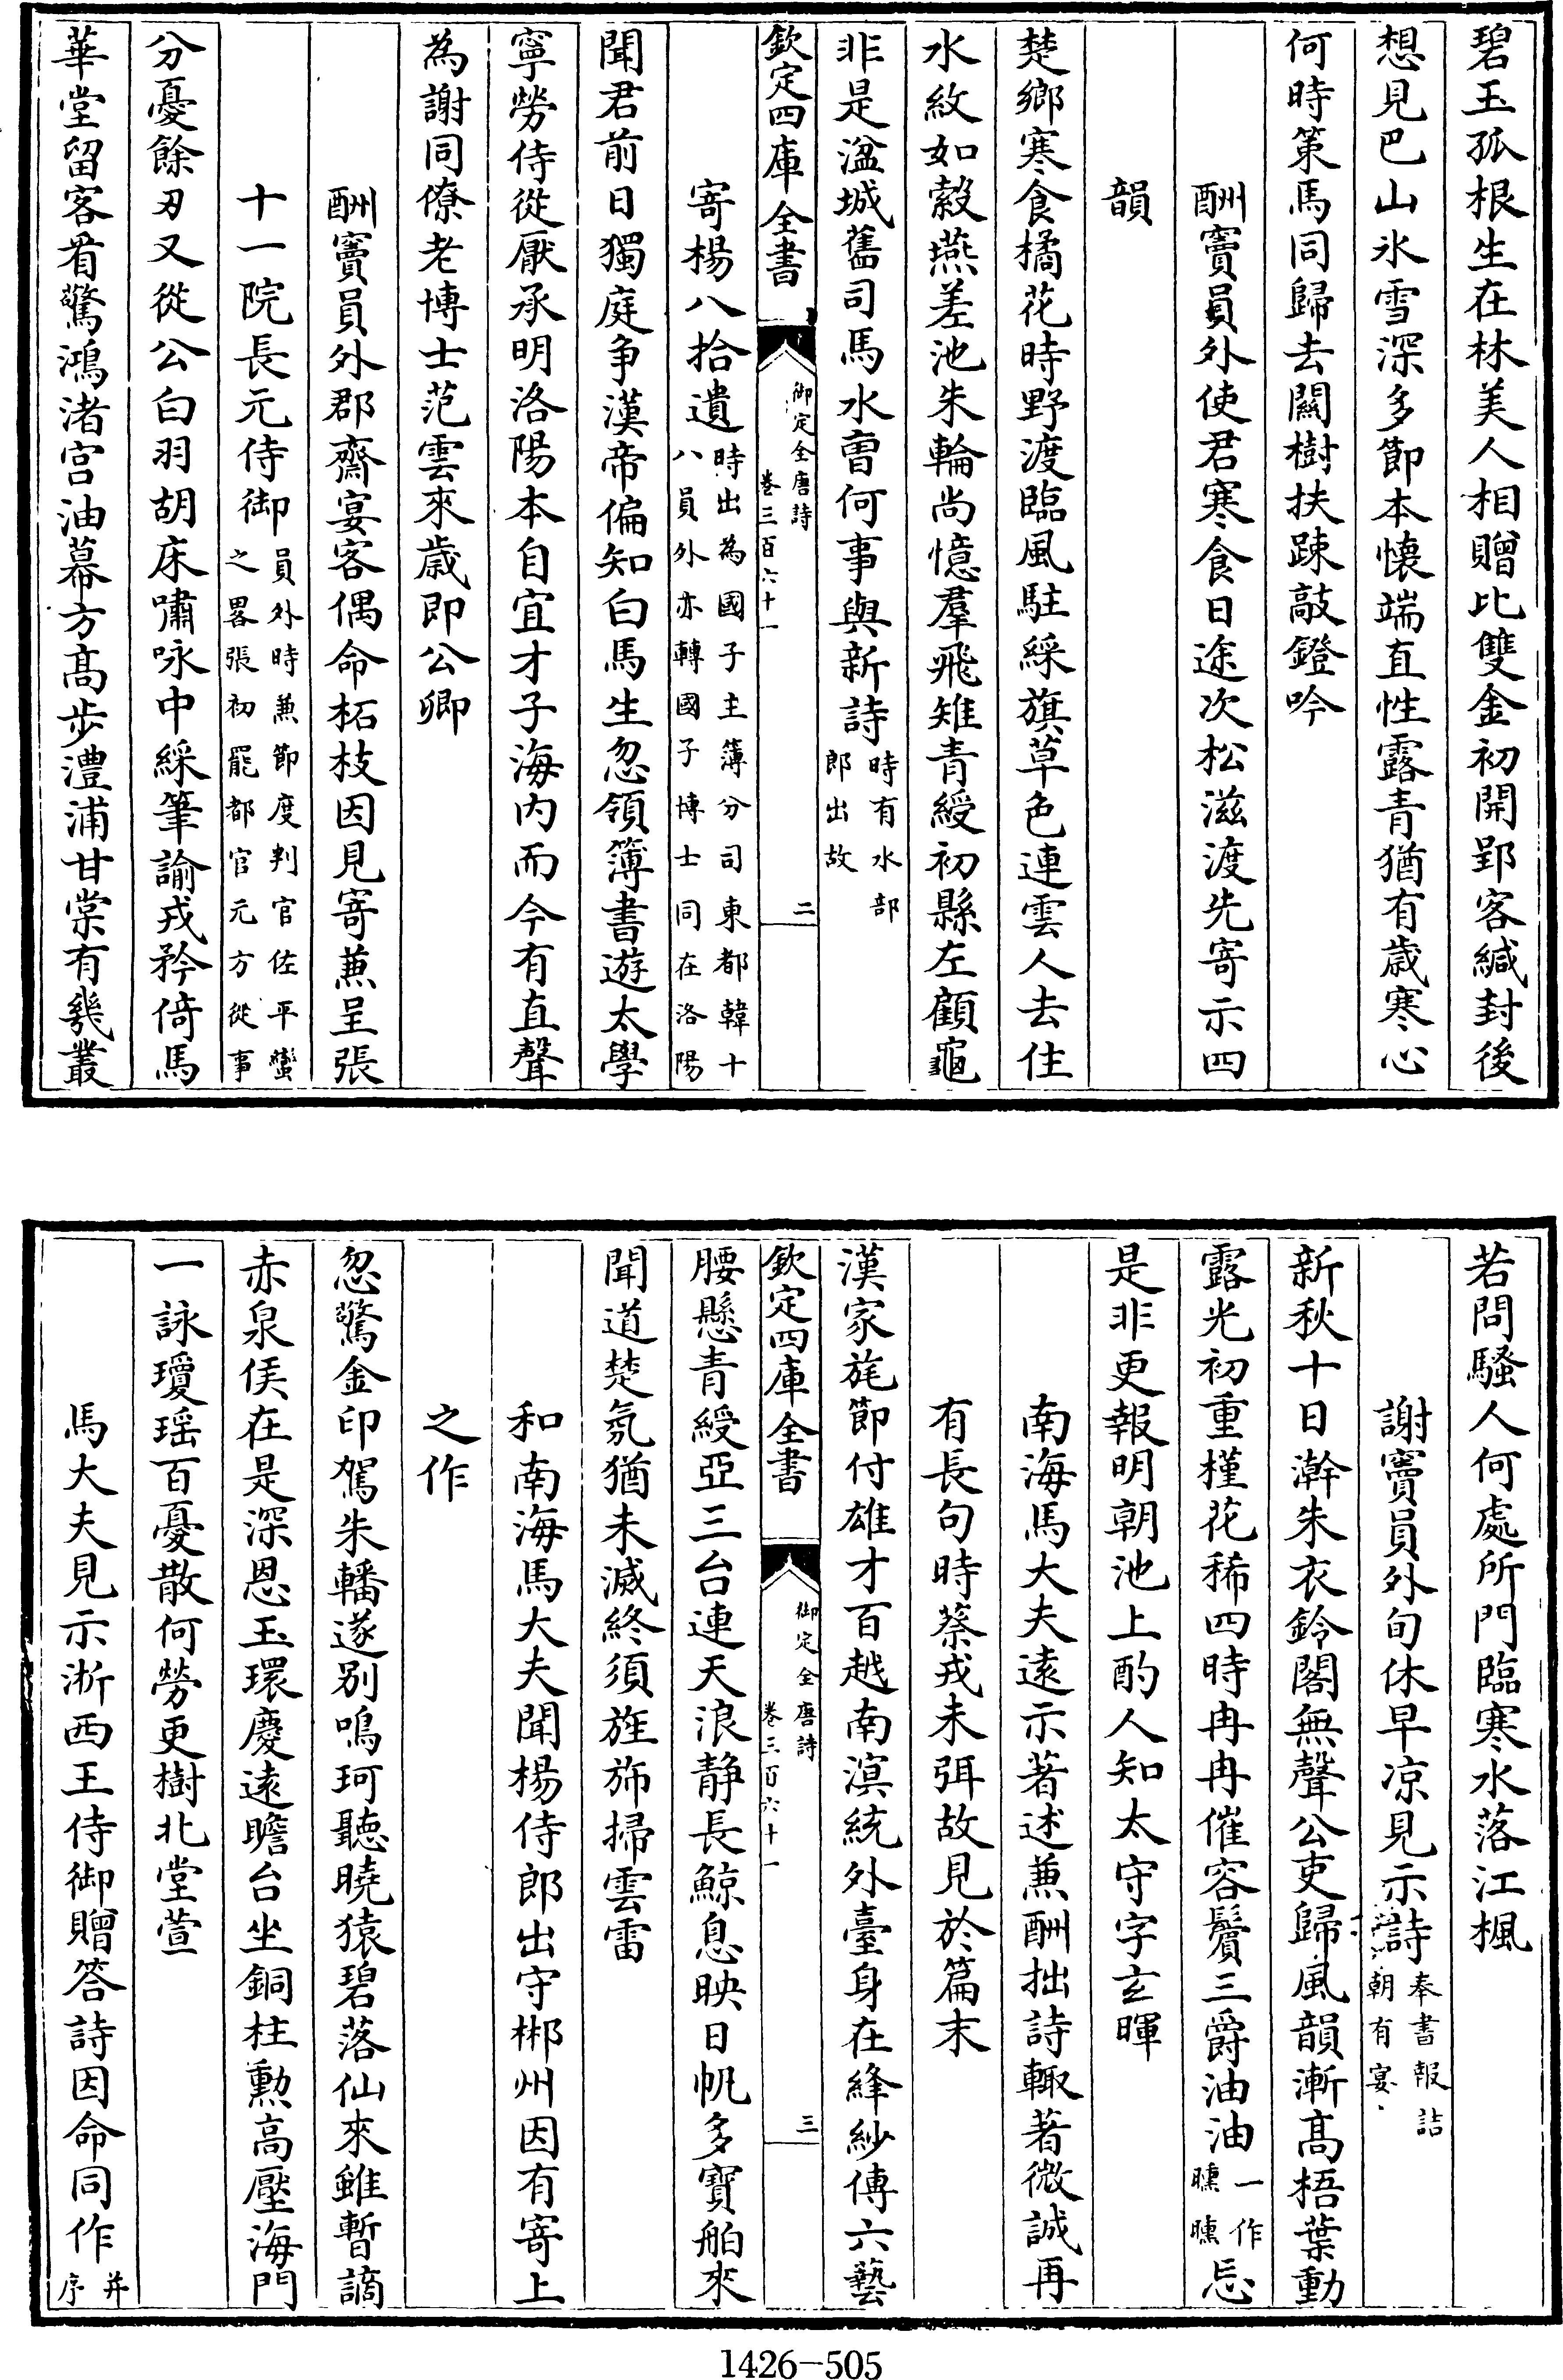 碧玉孤根生在林美人相贈比雙金初開郢客緘封後
想見巴山氷雪深多節本懐端直性露青猶有歳寒心
何時策馬同歸去關樹扶踈敲鐙吟
酬竇員外使君寒食日途次松滋渡先寄示四
韻
楚鄉寒食橘花時野渡臨風駐綵旗草色連雲人去住
水紋如縠燕差池朱輪尚憶羣飛雉青綬初縣左顧龜
非是湓城舊司馬水曹何事與新詩時有水部
郎出故
欽定四庫全書
御定全唐詩
卷三百六十一
二
寄楊八拾遺時出為國子主簿分司東都韓十
八員外亦轉國子博士同在洛陽
聞君前日獨庭争漢帝偏知白馬生忽領簿書遊太學
寧勞侍從厭承明洛陽本自宜才子海内而今有直聲
為謝同僚老博士范雲來歳即公卿
酬竇員外郡齋宴客偶命柘枝因見寄兼呈張
十一院長元侍御員外時兼節度判官佐平蠻
之畧張初罷都官元方從事
分憂餘刃又從公白羽胡床嘯咏中綵筆諭戎矜倚馬
華堂留客看驚鴻渚宫油幕方髙步澧浦甘棠有幾叢
若問騷人何處所門臨寒水落江楓
謝竇員外旬休早凉見示詩奉書報詰
朝有宴
新秋十日澣朱衣鈴閣無聲公吏歸風韻漸髙梧葉動
露光初重槿花稀四時冉冉催容鬢三爵油油一作
曛曛忘
是非更報明朝池上酌人知太守字玄暉
南海馬大夫逺示著述兼酬拙詩輙著微誠再
有長句時蔡戎未弭故見於篇末
漢家旄節付雄才百越南溟統外臺身在絳紗傳六藝
欽定四庫全書
御定全唐詩
卷三百六十一
三
腰懸青綬亞三台連天浪静長鯨息映日帆多寶舶來
聞道楚氛猶未滅終須旌斾掃雲雷
和南海馬大夫聞楊侍郎出守郴州因有寄上
之作
忽驚金印駕朱轓遂别鳴珂聽曉猿碧落仙來雖暫謫
赤泉侯在是深恩玉環慶逺瞻台坐銅柱勲高壓海門
一詠瓊瑶百憂散何勞更樹北堂萱
馬大夫見示浙西王侍御贈答詩因命同作并
序
1426-505